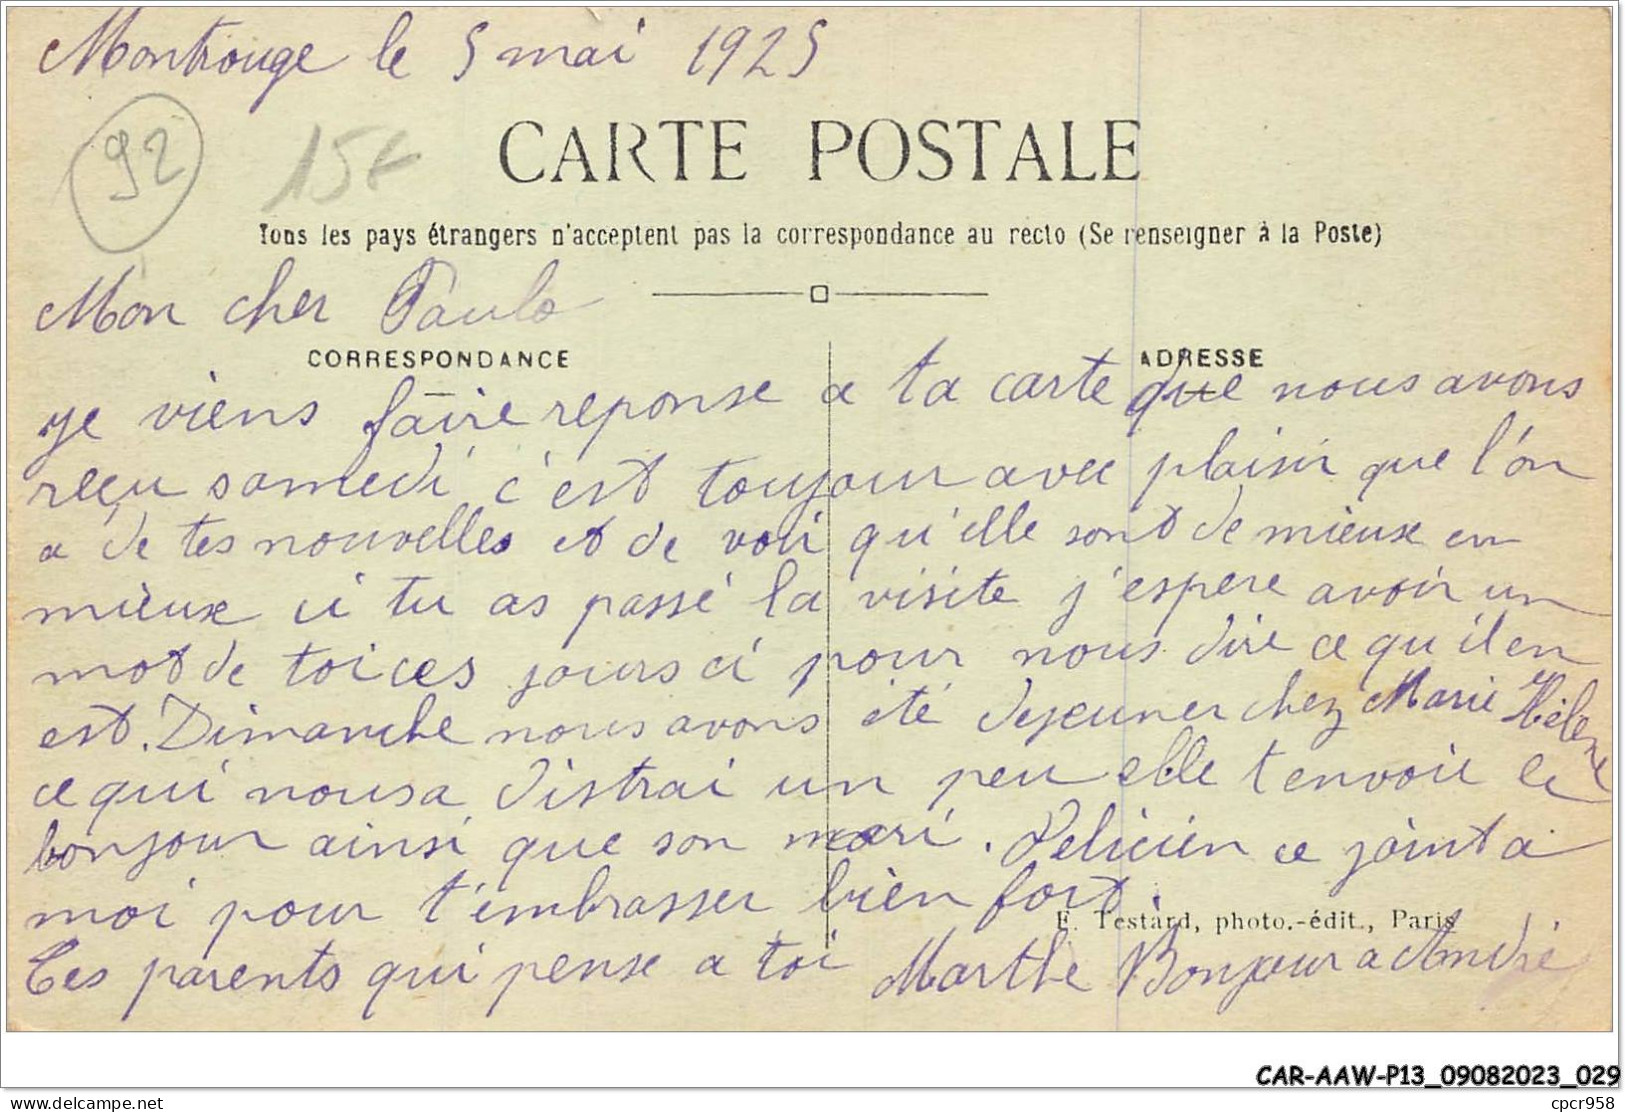 Montrouge le 5 mai 1925
92 15F
CARTE POSTALE
Tous les pays étrangers n'acceptent pas la correspondance au recto (Se renseigner à la Poste)
Mon cher Paulo
CORRESPONDANCE
ADRESSE
je viens faire reponse a ta carte que nous avons
reçu samedi c'est toujour avec plaisir que l'on
a de tes nouvelles et de voir qu'elle sont de mieux en
mieux si tu as passé la visite j'espere avoir un
mot de toi ces jours ci pour nous dire ce qu'il en
est. Dimanche nous avons été dejeuner chez Marie Hélene
ce qui nous a distrai un peu elle t envoie le
bonjour ainsi que son mari. Felicien ce joint a
moi pour t'embrasser bien fort.
E. Testard, photo.-édit., Paris
Tes parents qui pense a toi Marthe Bonjour a André
CAR-AAW-P13_09082023_029
www.delcampe.net
cpcr958